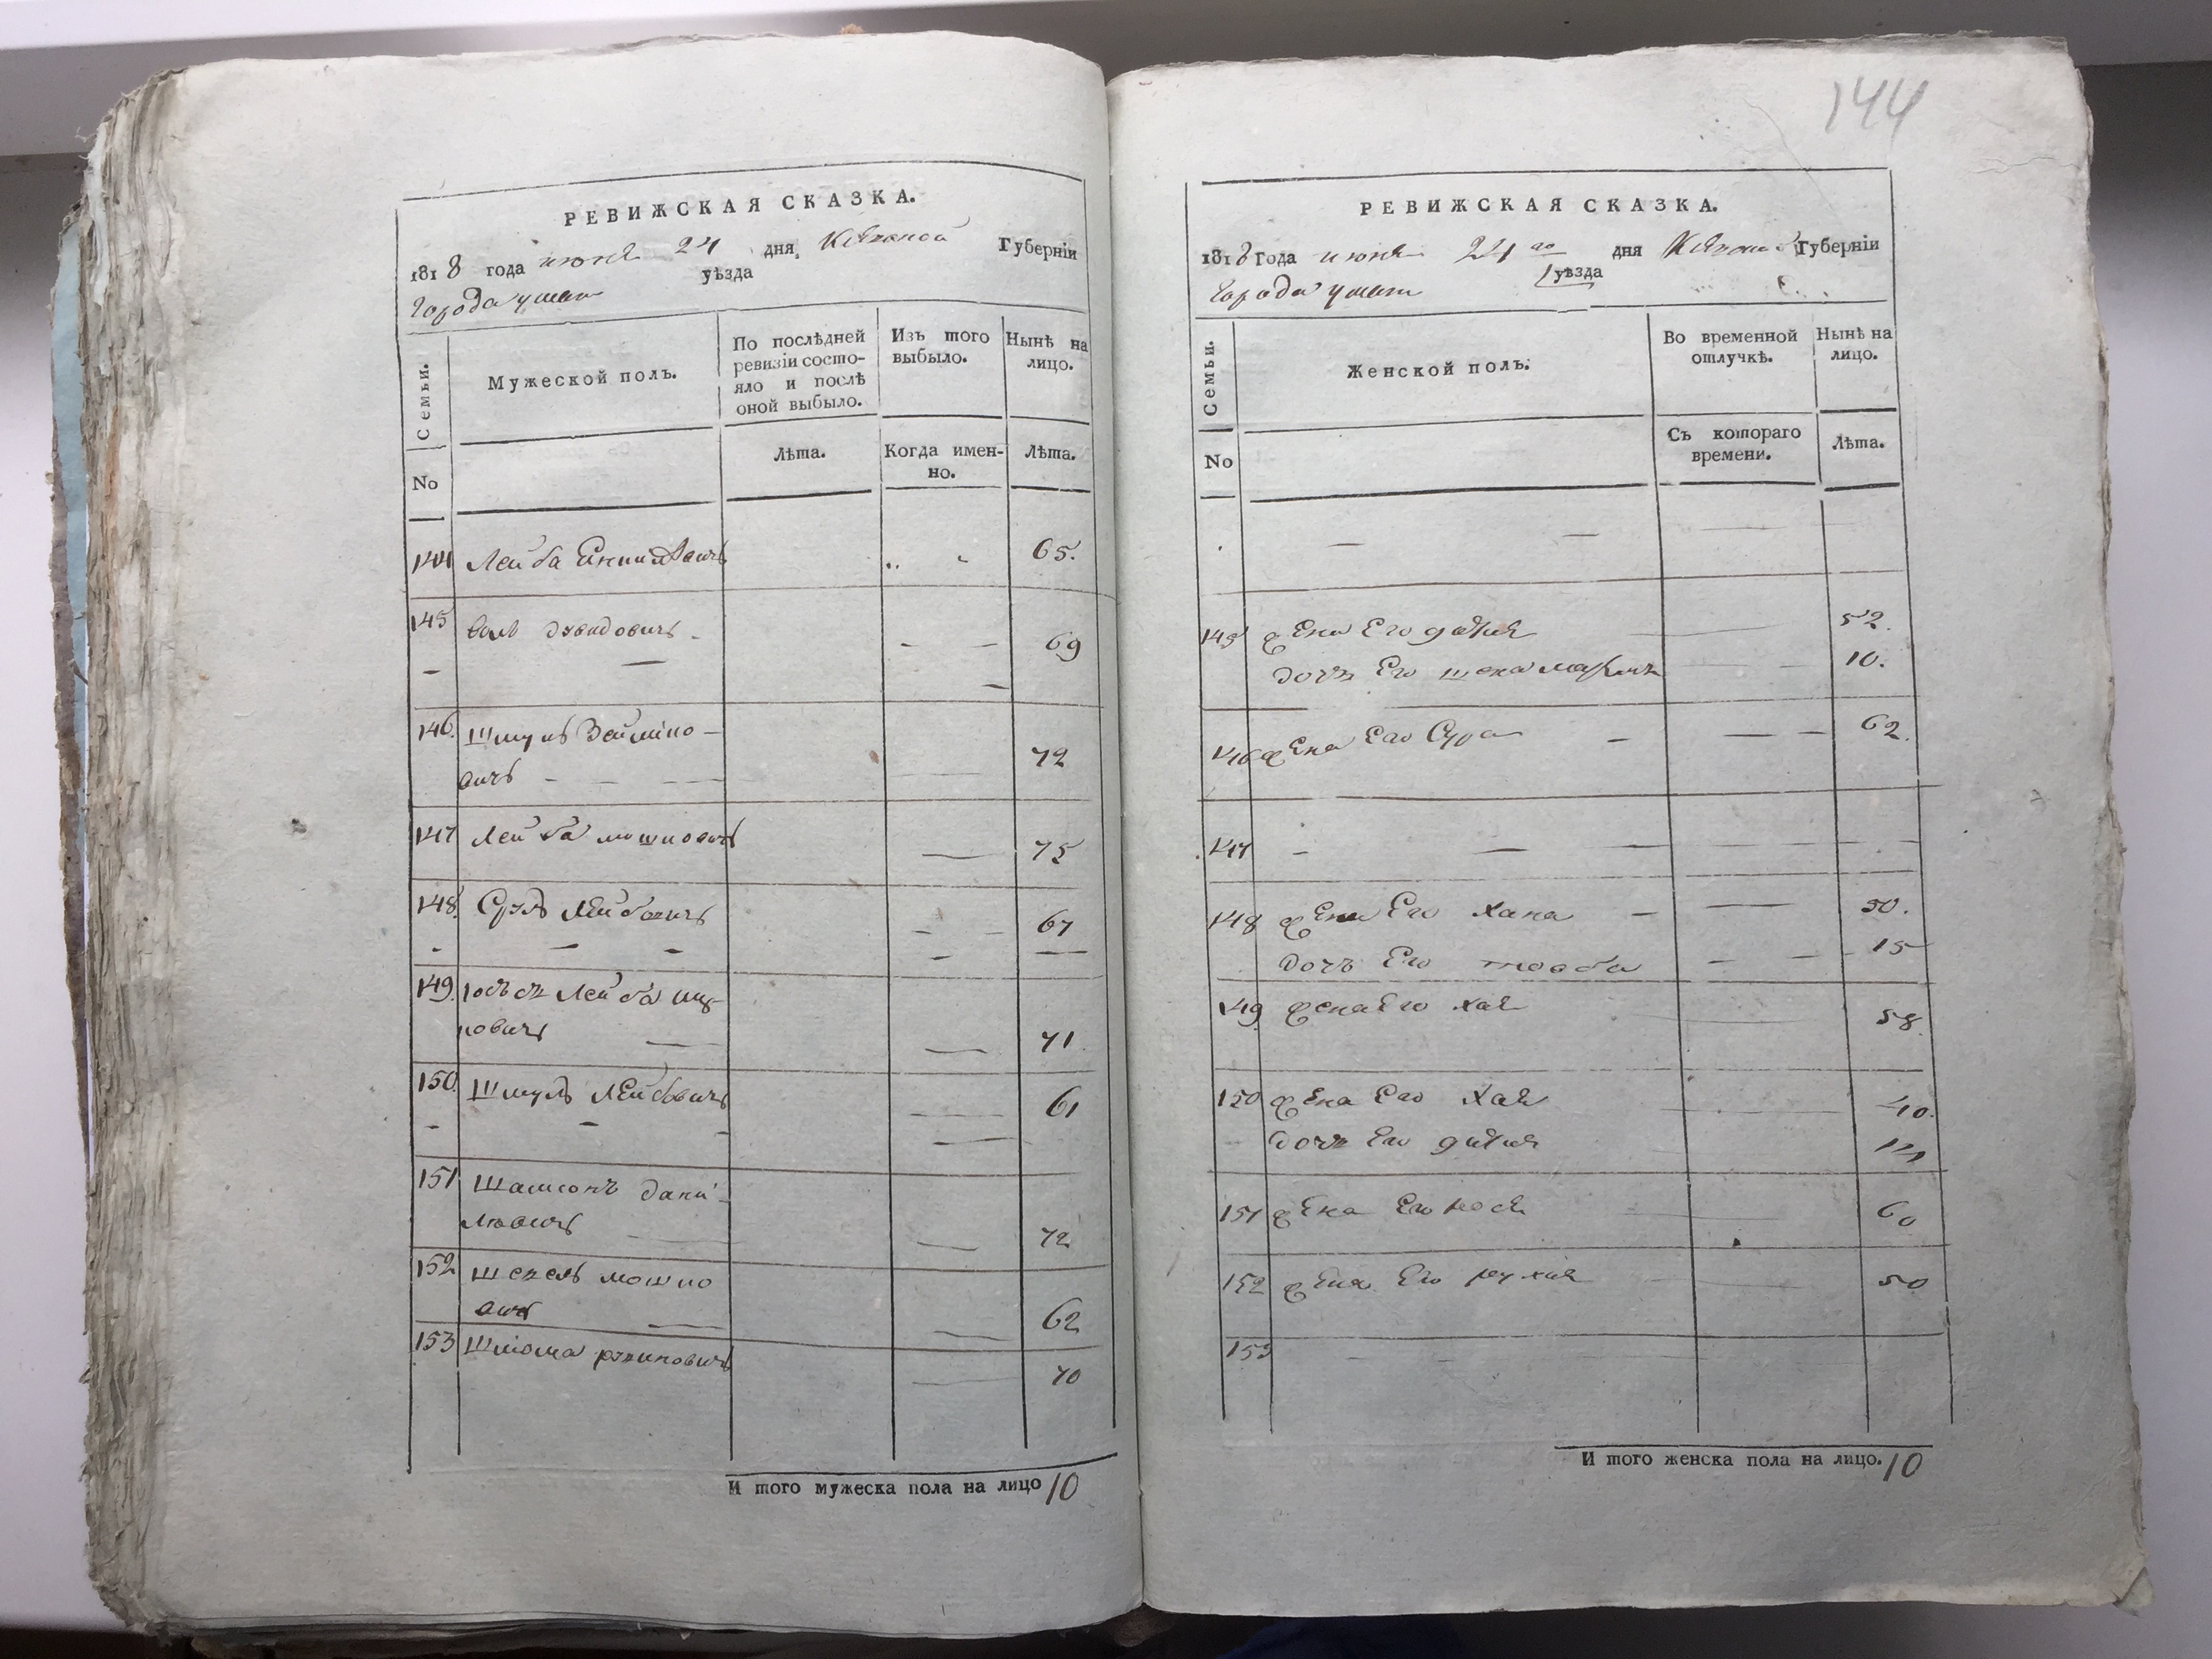 РЕВИЖСКАЯ СКАЗКА.
1818 года июня 24 дня, Кіевской Губерніи
города умани уѣзда
Семьи.
Мужеской полъ.
По послѣдней ревизіи состо-
яло и послѣ
оной выбыло.
Изъ того
выбыло.
Нынѣ на
лицо.
No
Лѣта.
Когда имен-
но.
Лѣта.
144 Лейба 65.
145 Давидовичъ 69
146. Шмуль
вичъ 72
147 Лейба мошковичъ 75
148. Сруль Лейбовичъ 67
149. Лейба
71
150. Шмуль Лейбовичъ 61
151 Шамсонъ Дани-
ловичъ 72
152 мошко
вичъ 62
153 Шлиома 70
И того мужеска пола на лицо 10
144
РЕВИЖСКАЯ СКАЗКА.
1818 Года июня 24 го дня Кіевской Губерніи
города умани уѣзда
Семьи.
Женской полъ.
Во временной
отлучкѣ.
Нынѣ на
лицо.
No
Съ котораго
времени.
Лѣта.
145 жена Его 52.
дочь Его 10.
146 жена Его Сура 62.
147
148 жена Его Хана 50.
дочь Его 15
149 жена Его Хая 58.
150 жена Его Хая 40.
дочь Его
151 жена Его 60
152 жена Его рухля 50
153
И того женска пола на лицо. 10